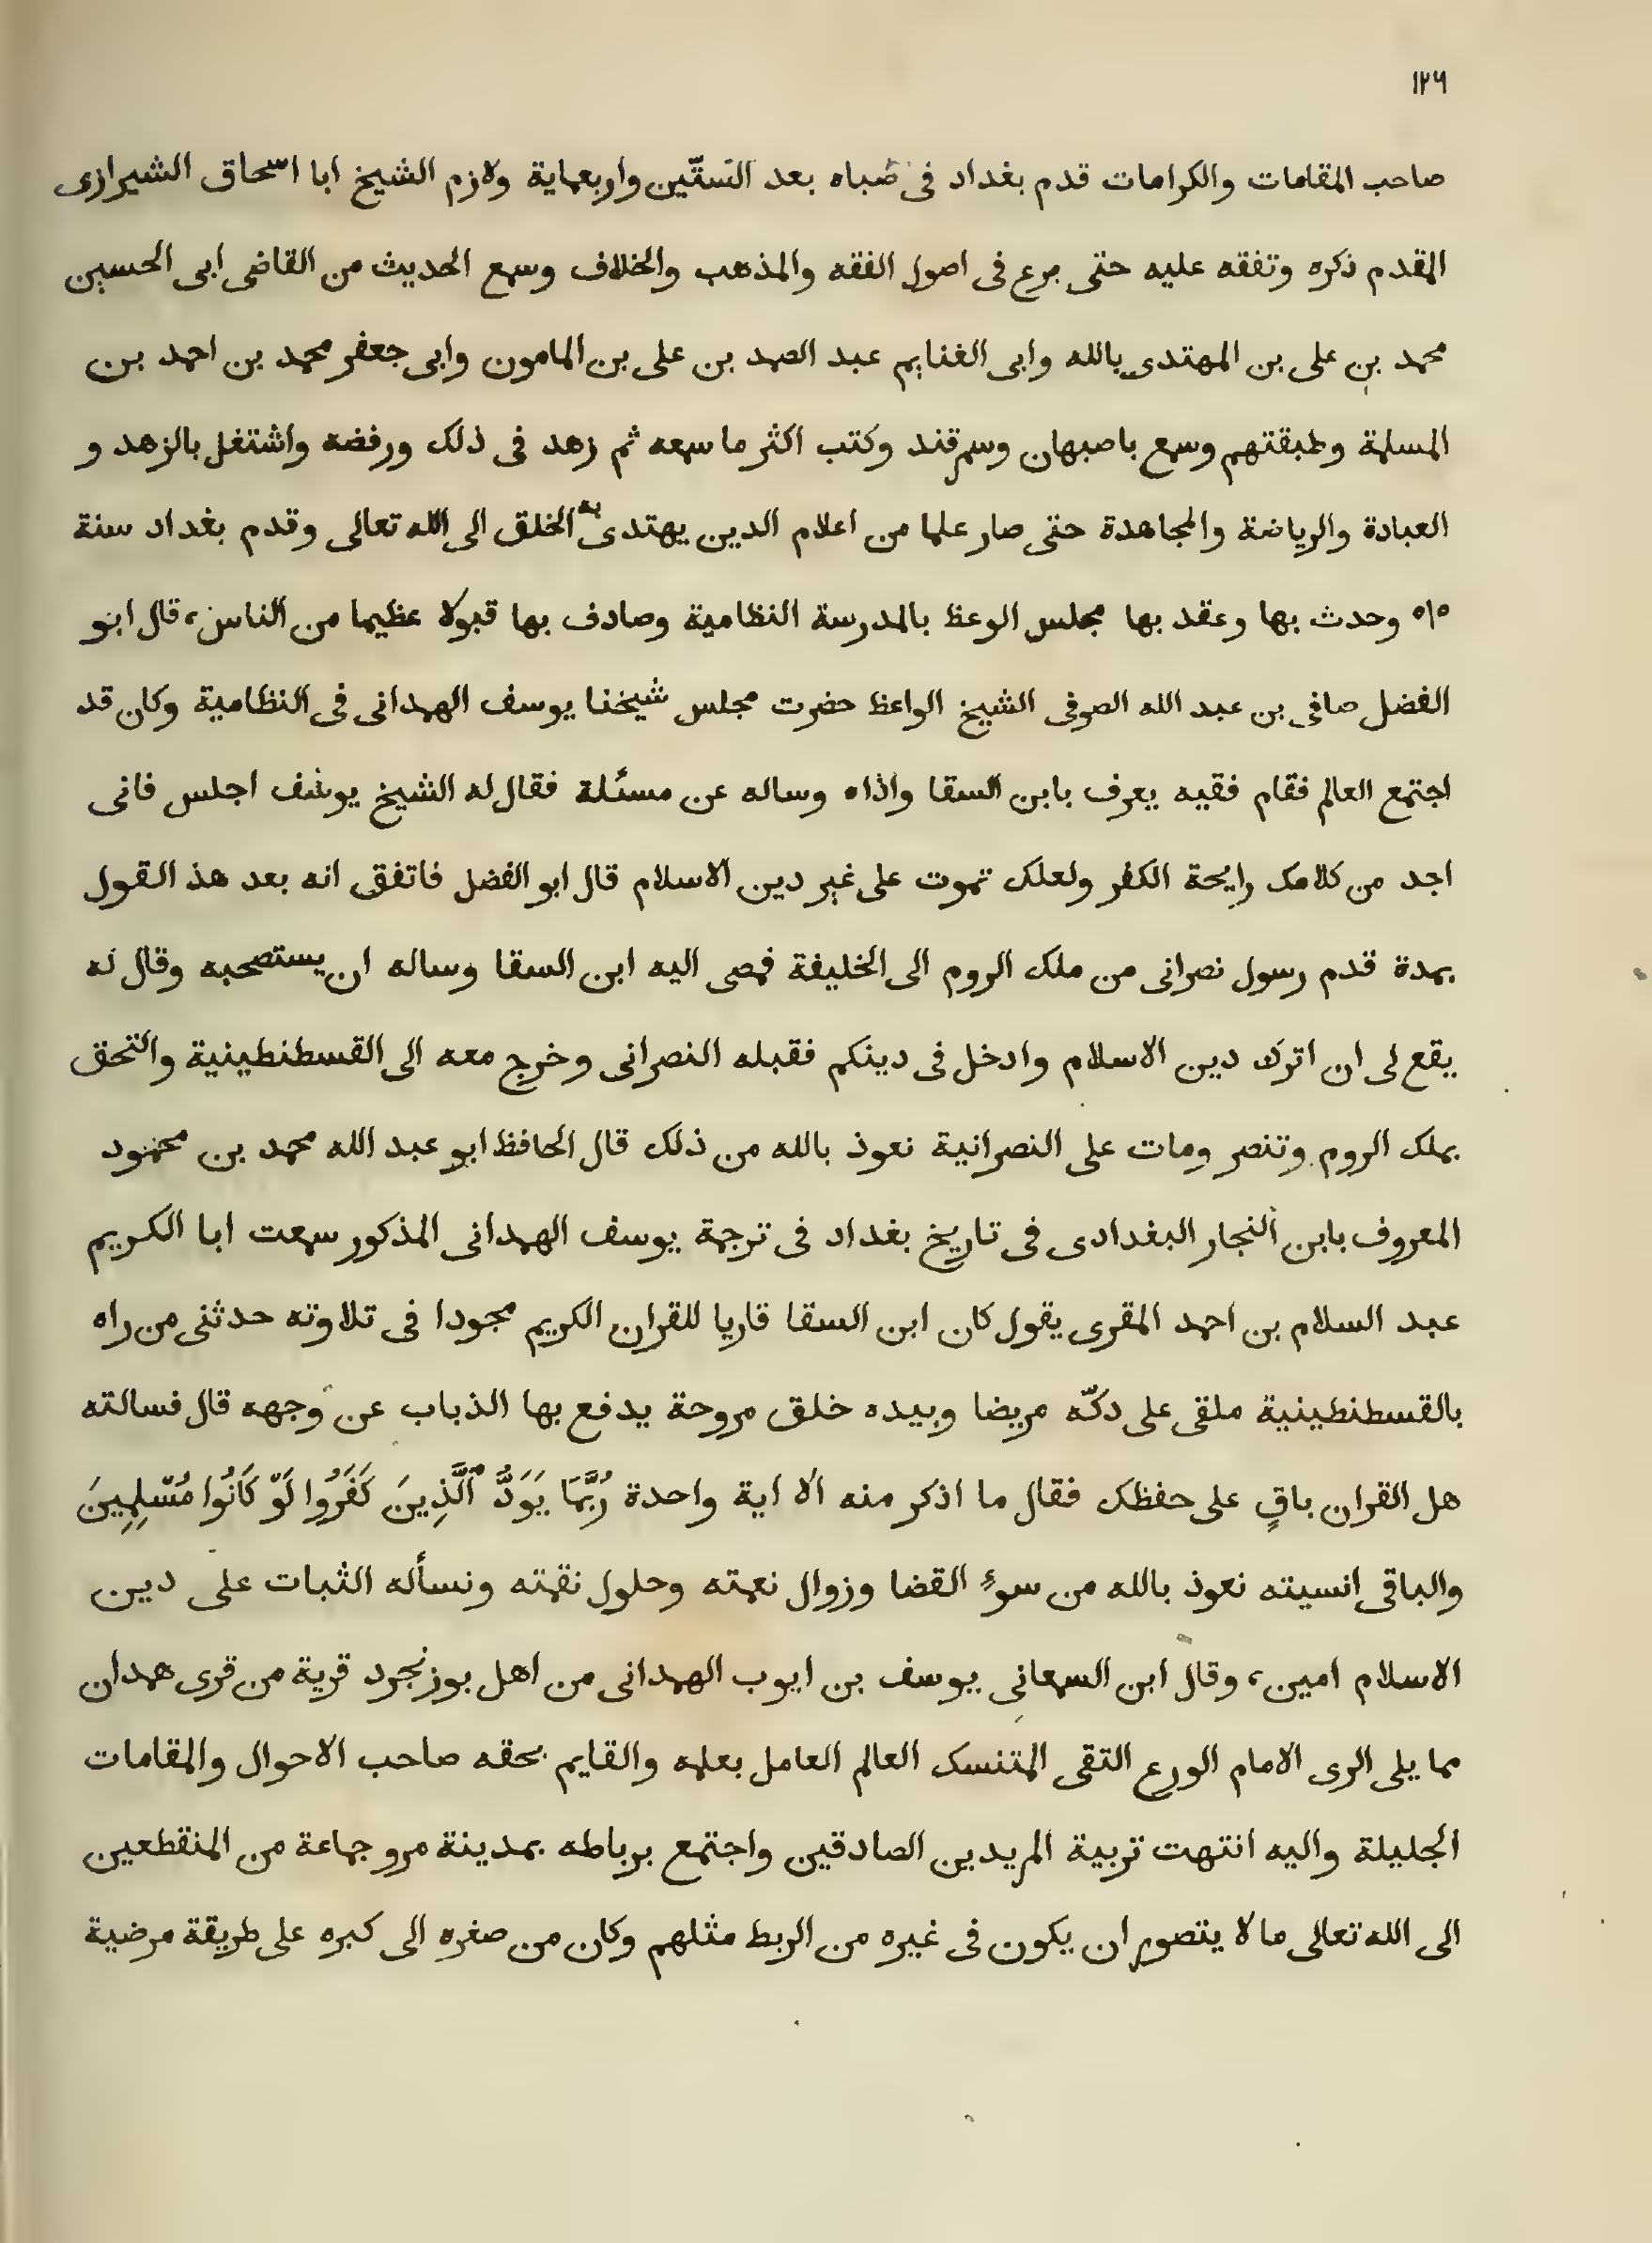 ١٢٦
صاحب المقامات والكرامات قدم بغداد فى صباه بعد الستّين واربعماية ولازم الشيخ ابا اسحاق الشيرازى
المقدم ذكره وتفقه عليه حتى برع فى اصول الفقه والمذهب والخلاف وسمع الحديث من القاضى ابى الحسين
محمد بن على بن المهتدى بالله وابى الغنايم عبد الصمد بن على بن المامون وابى جعفر محمد بن احمد بن
المسلمة وطبقتهم وسمع باصبهان وسمرقند وكتب اكثر ما سمعه ثم زهد فى ذلك ورفضه واشتغل بالزهد و
العبادة والرياضة والمجاهدة حتى صار علما من اعلام الدين يهتدى به الخلق الى الله تعالى وقدم بغداد سنة
٥١٥ وحدث بها وعقد بها مجلس الوعظ بالمدرسة النظامية وصادف بها قبولا عظيما من الناس، قال ابو
الفضل صافى بن عبد الله الصوفى الشيخ الواعظ حضرت مجلس شيخنا يوسف الهمدانى فى النظامية وكان قد
اجتمع العالم فقام فقيه يعرف بابن السقا واذاه وساله عن مسئلة فقال له الشيخ يوسف اجلس فانى
اجد من كلامك رايحة الكفر ولعلك تموت على غير دين الاسلام قال ابو الفضل فاتفق انه بعد هذ القول
بمدة قدم رسول نصرانى من ملك الروم الى الخليفة فمصى اليه ابن السقا وساله ان يستصحبه وقال له
يقع لى ان اترك دين الاسلام وادخل فى دينكم فقبله النصرانى وخرج معه الى القسطنطينية والتحق
بملك الروم وتنصر ومات على النصرانية نعوذ بالله من ذلك قال الحافظ ابو عبد الله محمد بن محمود
المعروف بابن النجار البغدادى فى تاريخ بغداد فى ترجمة يوسف الهمدانى المذكور سمعت ابا الكريم
عبد السلام بن احمد المقرى يقول كان ابن السقا قاريا للقران الكريم مجودا فى تلاوته حدثنى من راه
بالقسطنطينية ملقى على دكّه مريضا وبيده خلق مروحة يدفع بها الذباب عن وجهه قال فسالته
هل القران باقٍ على حفظك فقال ما اذكر منه الا اية واحدة رُبَّمَا يَوَدُّ ٱلَّذِينَ كَفَرُوا لَوْ كَانُوا مُسْلِمِينَ
والباقى انسيته نعوذ بالله من سوءِ القضا وزوال نعمته وحلول نقمته ونسأله الثبات على دين
الاسلام امين، وقال ابن السمعانى يوسف بن ايوب الهمدانى من اهل بوزنجرد قرية من قرى همدان
مما يلى الرى الامام الورع التقى المتنسك العالم العامل بعلمه والقايم بحقه صاحب الاحوال والمقامات
الجليلة واليه انتهت تربية المريدين الصادقين واجتمع برباطه بمدينة مرو جماعة من المنقطعين
الى الله تعالى ما لا يتصور ان يكون فى غيره من الربط مثلهم وكان من صغره الى كبره على طريقة مرضية